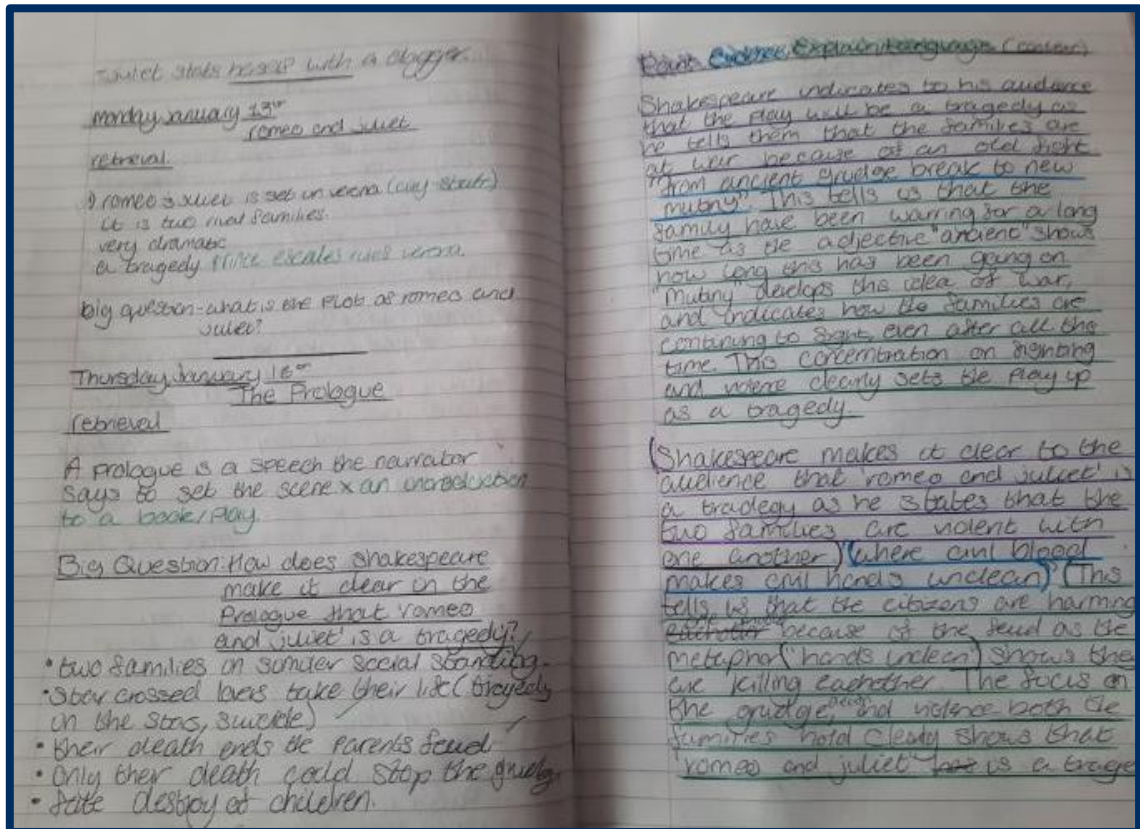 Juliet stabs herself with a dagger.
monday January 13th
romeo and juliet
retrieval
romeo & juliet is set in verona (city state)
it is two rival families.
very dramatic
a tragedy Prince escales rules verona.
big question - what is the Plot of romeo and
juliet?
Thursday January 16th
The Prologue
retrieval
A prologue is a speech the narrator
says to set the scene x an introduction
to a book/Play.
Big Question: How does shakespeare
make it clear in the
Prologue that 'romeo
and juliet' is a tragedy?
• two families in similer social standing.
• Star crossed lovers take their life (tragedy
in the stars, suicide)
• their death ends the Parents feud
• Only their death could stop the grudge
• fate destroy of children.
Point Evidence Explain Language (context)
Shakespeare indicates to his audience
that the Play will be a tragedy as
he tells them that the families are
at war because of an old fight
"from ancient grudge break to new
mutiny". This tells us that the
family have been warring for a long
time as the adjective "ancient" shows
how long this has been going on.
"Mutiny" develops this idea of war,
and indicates how the families are
continuing to fight, even after all this
time. This concentration on fighting
and violence clearly sets the Play up
as a tragedy.
(Shakespeare makes it clear to the
audience that 'romeo and juliet' is
a tradegy as he states that the
two families are violent with
one another) "(where civil blood
makes civil hands unclean)" (This
tells us that the citizens are harming
eachother because of the feud as the
metaphor ("hands unclean") shows they
are killing eachother The focus on
the grudge, and violence both the
families hold clearly shows that
'romeo and juliet' is a trage